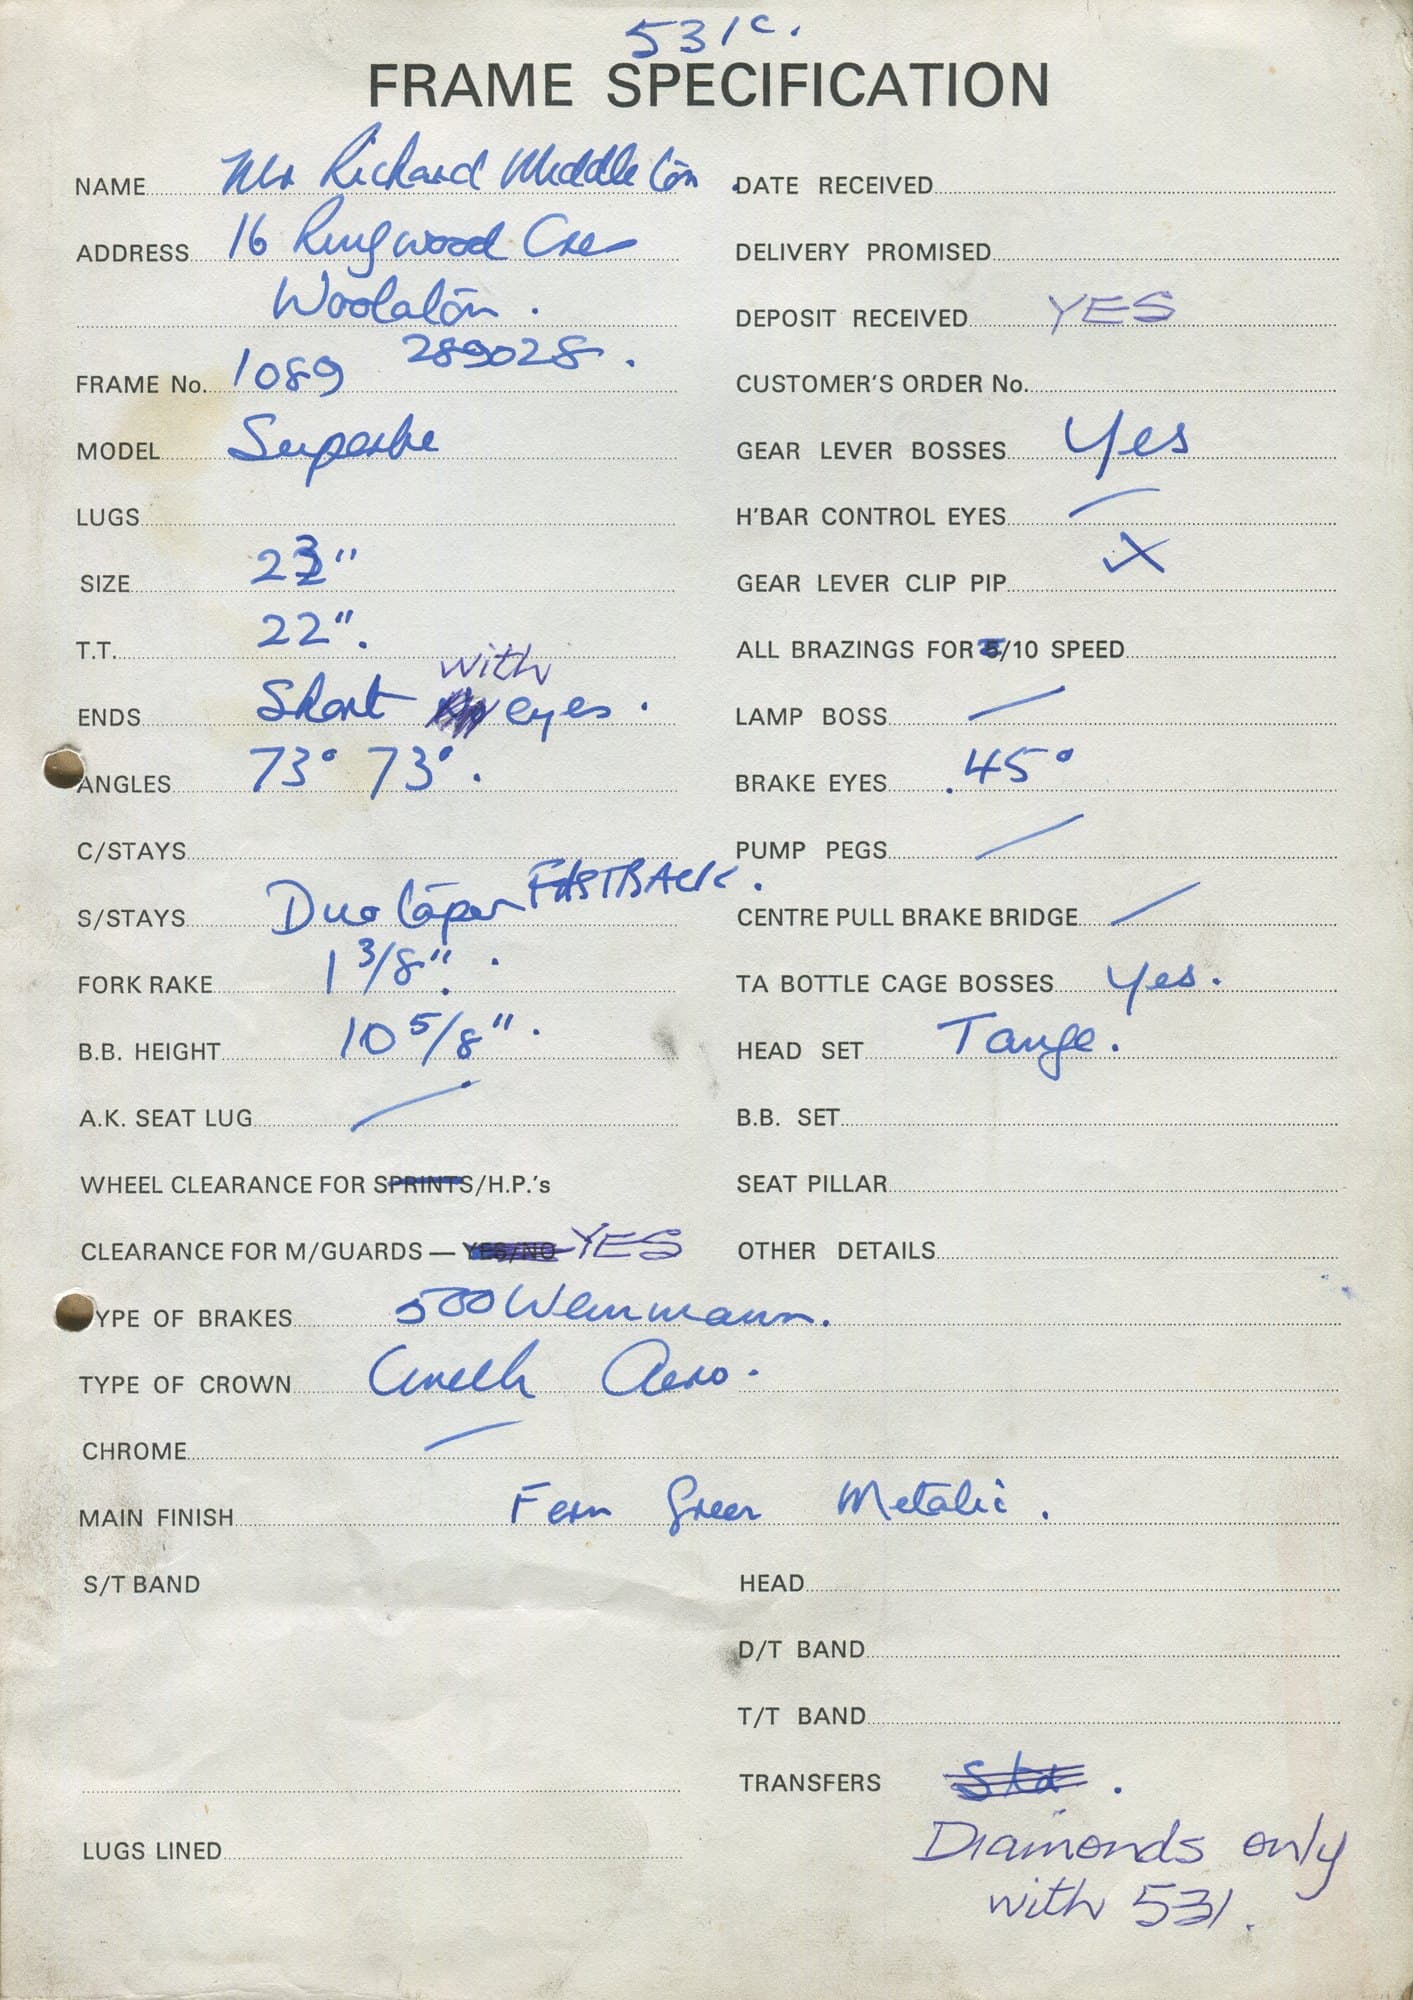 531c.
FRAME SPECIFICATION
NAME Mr Richard Middleton
ADDRESS 16 Ringwood Cres
Woolaton.
289028.
FRAME No. 1089
MODEL Superbe
LUGS
SIZE 23"
T.T. 22".
with
ENDS Short eyes.
ANGLES 73° 73°.
C/STAYS
S/STAYS Duo taper FASTBACK.
FORK RAKE 1 3/8".
B.B. HEIGHT 10 5/8".
A.K. SEAT LUG /
WHEEL CLEARANCE FOR SPRINTS/H.P.'s
CLEARANCE FOR M/GUARDS — YES/NO YES
TYPE OF BRAKES 500 Weinmann.
TYPE OF CROWN Cinelli Aero.
CHROME /
MAIN FINISH Fern Green Metalic.
S/T BAND
LUGS LINED
DATE RECEIVED
DELIVERY PROMISED
DEPOSIT RECEIVED YES
CUSTOMER'S ORDER No.
GEAR LEVER BOSSES Yes
H'BAR CONTROL EYES /
GEAR LEVER CLIP PIP X
ALL BRAZINGS FOR 5/10 SPEED
LAMP BOSS /
BRAKE EYES .45°
PUMP PEGS /
CENTRE PULL BRAKE BRIDGE /
TA BOTTLE CAGE BOSSES Yes.
HEAD SET Tange.
B.B. SET
SEAT PILLAR
OTHER DETAILS
HEAD
D/T BAND
T/T BAND
TRANSFERS Std.
Diamonds only
with 531.